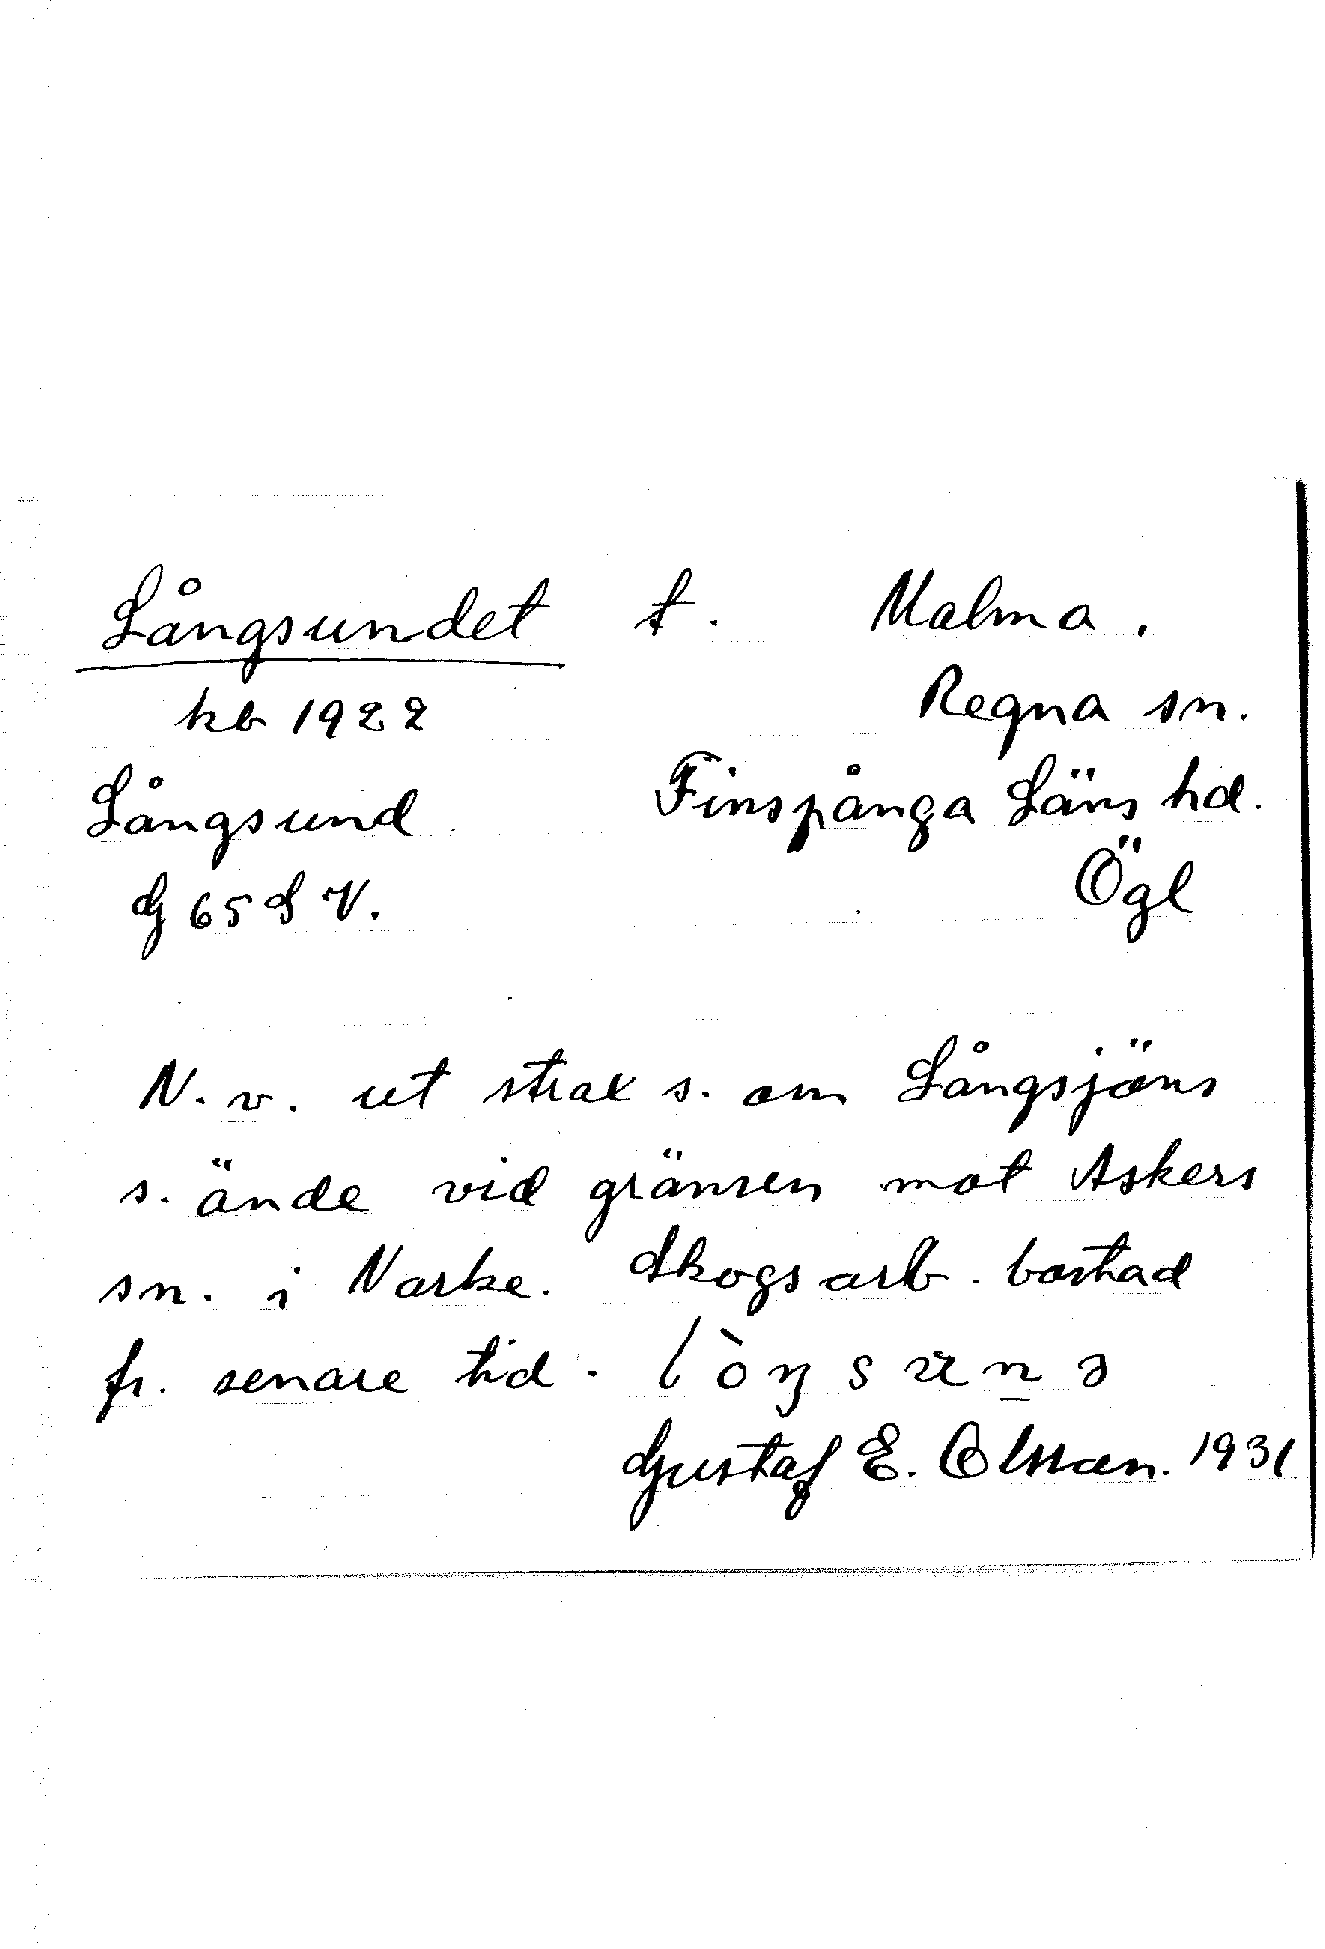 Långsundet t. Malma.
kb 1922 Regna sn.
Långsund Finspånga Läns hd.
G 65 S V. Ögl
N. v. ut strax s. om Långsjöns
s. ände vid gränsen mot Askers
sn. i Narke. Skogsarb. bostad
fr. senare tid.
Gustaf E. Olsson. 1931